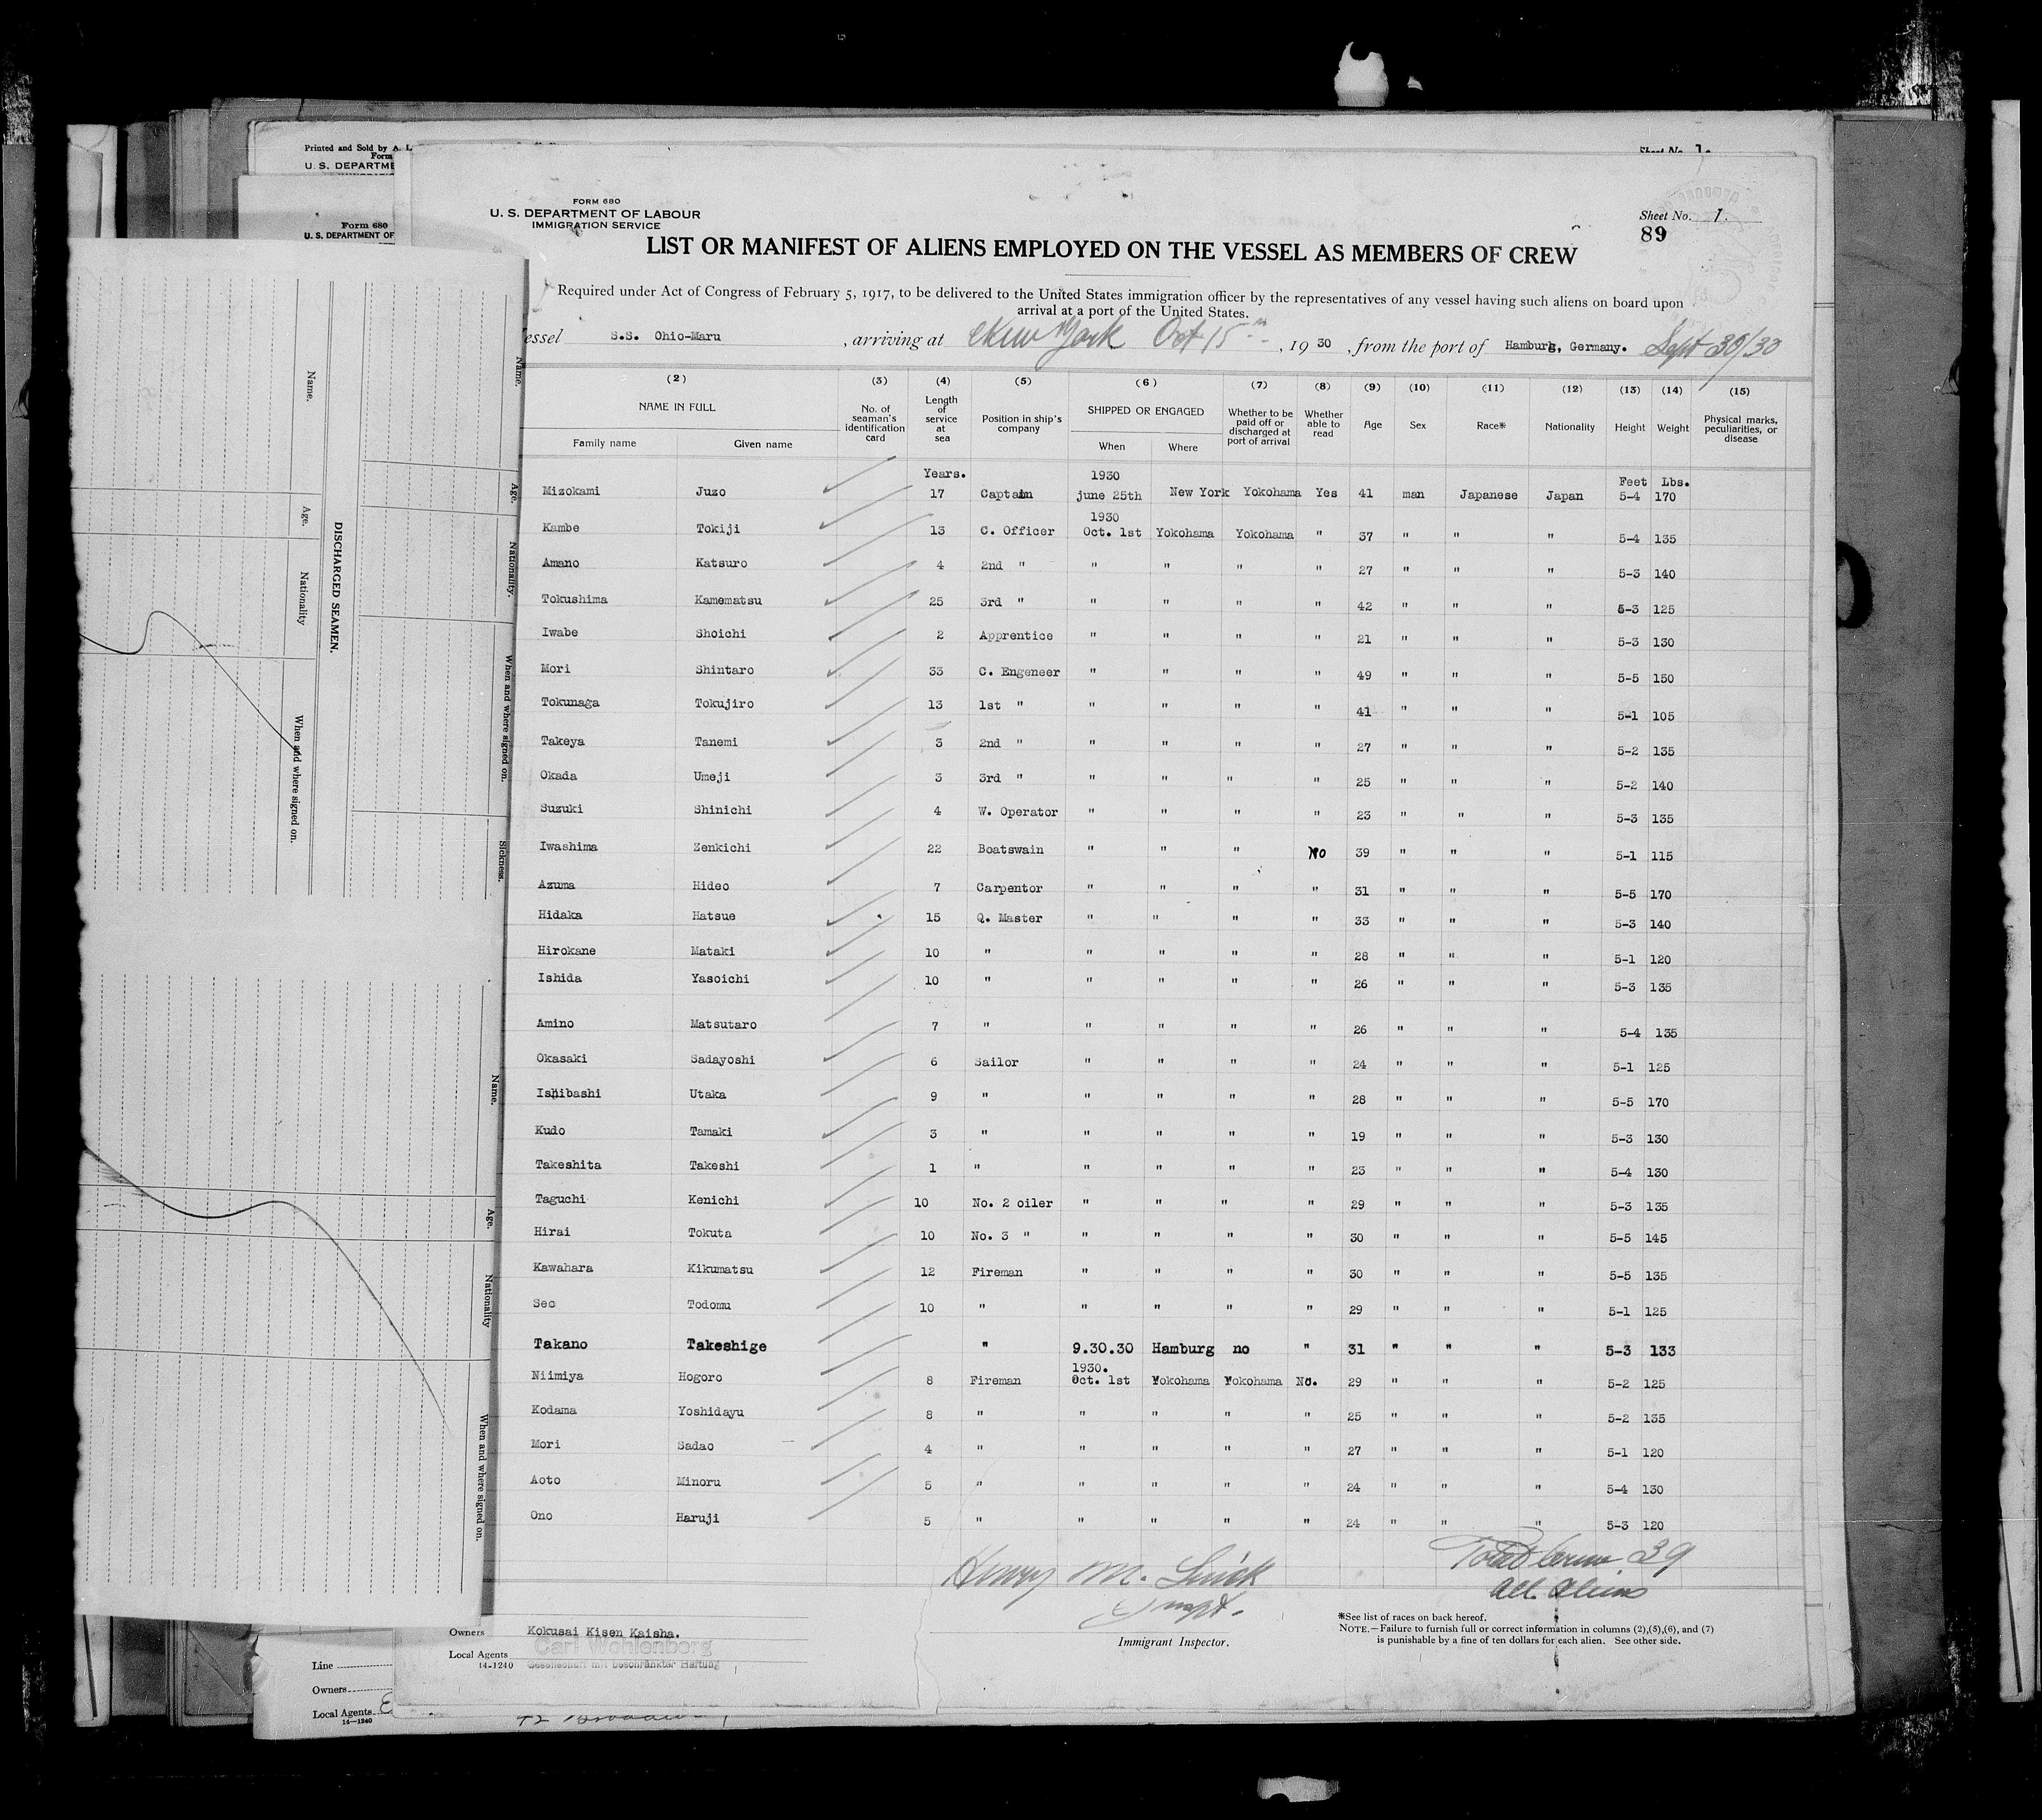 Printed and Sold by A. L
Form
U. S. DEPARTME
Sheet No. 1.
Form 680
U. S. DEPARTMENT OF
FORM 680
U. S. DEPARTMENT OF LABOUR
IMMIGRATION SERVICE
Sheet No. 1.
89
LIST OR MANIFEST OF ALIENS EMPLOYED ON THE VESSEL AS MEMBERS OF CREW
Required under Act of Congress of February 5, 1917, to be delivered to the United States immigration officer by the representatives of any vessel having such aliens on board upon
arrival at a port of the United States.
essel S.S. Ohio-Maru , arriving at New York Oct 15th , 19 30 , from the port of Hamburg, Germany. Sept 30/30
(2) (3) (4) (5) (6) (7) (8) (9) (10) (11) (12) (13) (14) (15)
NAME IN FULL No. of seaman's identification card Length of service at sea Position in ship's company SHIPPED OR ENGAGED Whether to be paid off or discharged at port of arrival Whether able to read Age Sex Race* Nationality Height Weight Physical marks, peculiarities, or disease
Family name Given name When Where
Years. 1930 Feet Lbs.
Mizokami Juzo 17 Captain june 25th New York Yokohama Yes 41 man Japanese Japan 5-4 170
1930
Kambe Tokiji 13 C. Officer Oct. 1st Yokohama Yokohama " 37 " " " 5-4 135
Amano Katsuro 4 2nd " " " " " 27 " " " 5-3 140
Tokushima Kamematsu 25 3rd " " " " " 42 " " " 5-3 125
Iwabe Shoichi 2 Apprentice " " " " 21 " " " 5-3 130
Mori Shintaro 33 C. Engeneer " " " " 49 " " " 5-5 150
Tokunaga Tokujiro 13 1st " " " " " 41 " " " 5-1 105
Takeya Tanemi 3 2nd " " " " " 27 " " " 5-2 135
Okada Umeji 3 3rd " " " " " 25 " " " 5-2 140
Suzuki Shinichi 4 W. Operator " " " " 23 " " " 5-3 135
Iwashima Zenkichi 22 Boatswain " " " No 39 " " " 5-1 115
Azuma Hideo 7 Carpentor " " " " 31 " " " 5-5 170
Hidaka Hatsue 15 Q. Master " " " " 33 " " " 5-3 140
Hirokane Mataki 10 " " " " " 28 " " " 5-1 120
Ishida Yasoichi 10 " " " " " 26 " " " 5-3 135
Amino Matsutaro 7 " " " " " 26 " " " 5-4 135
Okasaki Sadayoshi 6 Sailor " " " " 24 " " " 5-1 125
Ishibashi Utaka 9 " " " " " 28 " " " 5-5 170
Kudo Tamaki 3 " " " " " 19 " " " 5-3 130
Takeshita Takeshi 1 " " " " " 23 " " " 5-4 130
Taguchi Kenichi 10 No. 2 oiler " " " " 29 " " " 5-3 135
Hirai Tokuta 10 No. 3 " " " " " 30 " " " 5-5 145
Kawahara Kikumatsu 12 Fireman " " " " 30 " " " 5-5 135
Seo Todomu 10 " " " " " 29 " " " 5-1 125
Takano Takeshige " 9.30.30 Hamburg no " 31 " " " 5-3 133
1930.
Niimiya Hogoro 8 Fireman Oct. 1st Yokohama Yokohama No. 29 " " " 5-2 125
Kodama Yoshidayu 8 " " " " " 25 " " " 5-2 135
Mori Sadao 4 " " " " " 27 " " " 5-1 120
Aoto Minoru 5 " " " " " 24 " " " 5-4 130
Ono Haruji 5 " " " " " 24 " " " 5-3 120
Total 39
All Aliens
Henry M.
Immigrant Inspector.
*See list of races on back hereof.
NOTE.—Failure to furnish full or correct information in columns (2),(5),(6), and (7)
is punishable by a fine of ten dollars for each alien. See other side.
Owners Kokusai Kisen Kaisha.
Carl Wohlenberg
Local Agents Gesellschaft mit beschränkter Haftung
14-1240
Line
Owners
Local Agents
14—1240
Name.
Age.
Nationality.
When and where signed on.
Sickness.
DISCHARGED SEAMEN.
Name.
Age.
Nationality
When and where signed on.
Name.
Age.
Nationality
When and where signed on.